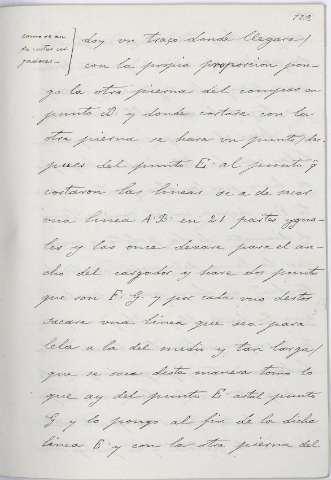 como se an
de cortar car
gadores
doy un traço donde llegare /
con la propia proporcion pon-
go la otra pierna del compas en
punto D y donde cortare con la
otra pierna se hara un punto / des-
pues del punto E al punto q
cortaron las lineas se a de sacar
una linea A B en 21 partes ygua-
les y las once dexare para el an-
cho del cargador y hare dos puntos
que son F. G y por cada uno destos
sacare una linea que sea para
lela a la del medio y tan larga /
que se saca desta manera tomo lo
que ay del punto E astel punto
G y lo pongo al fin de la dicha
linea E y con la otra pierna del